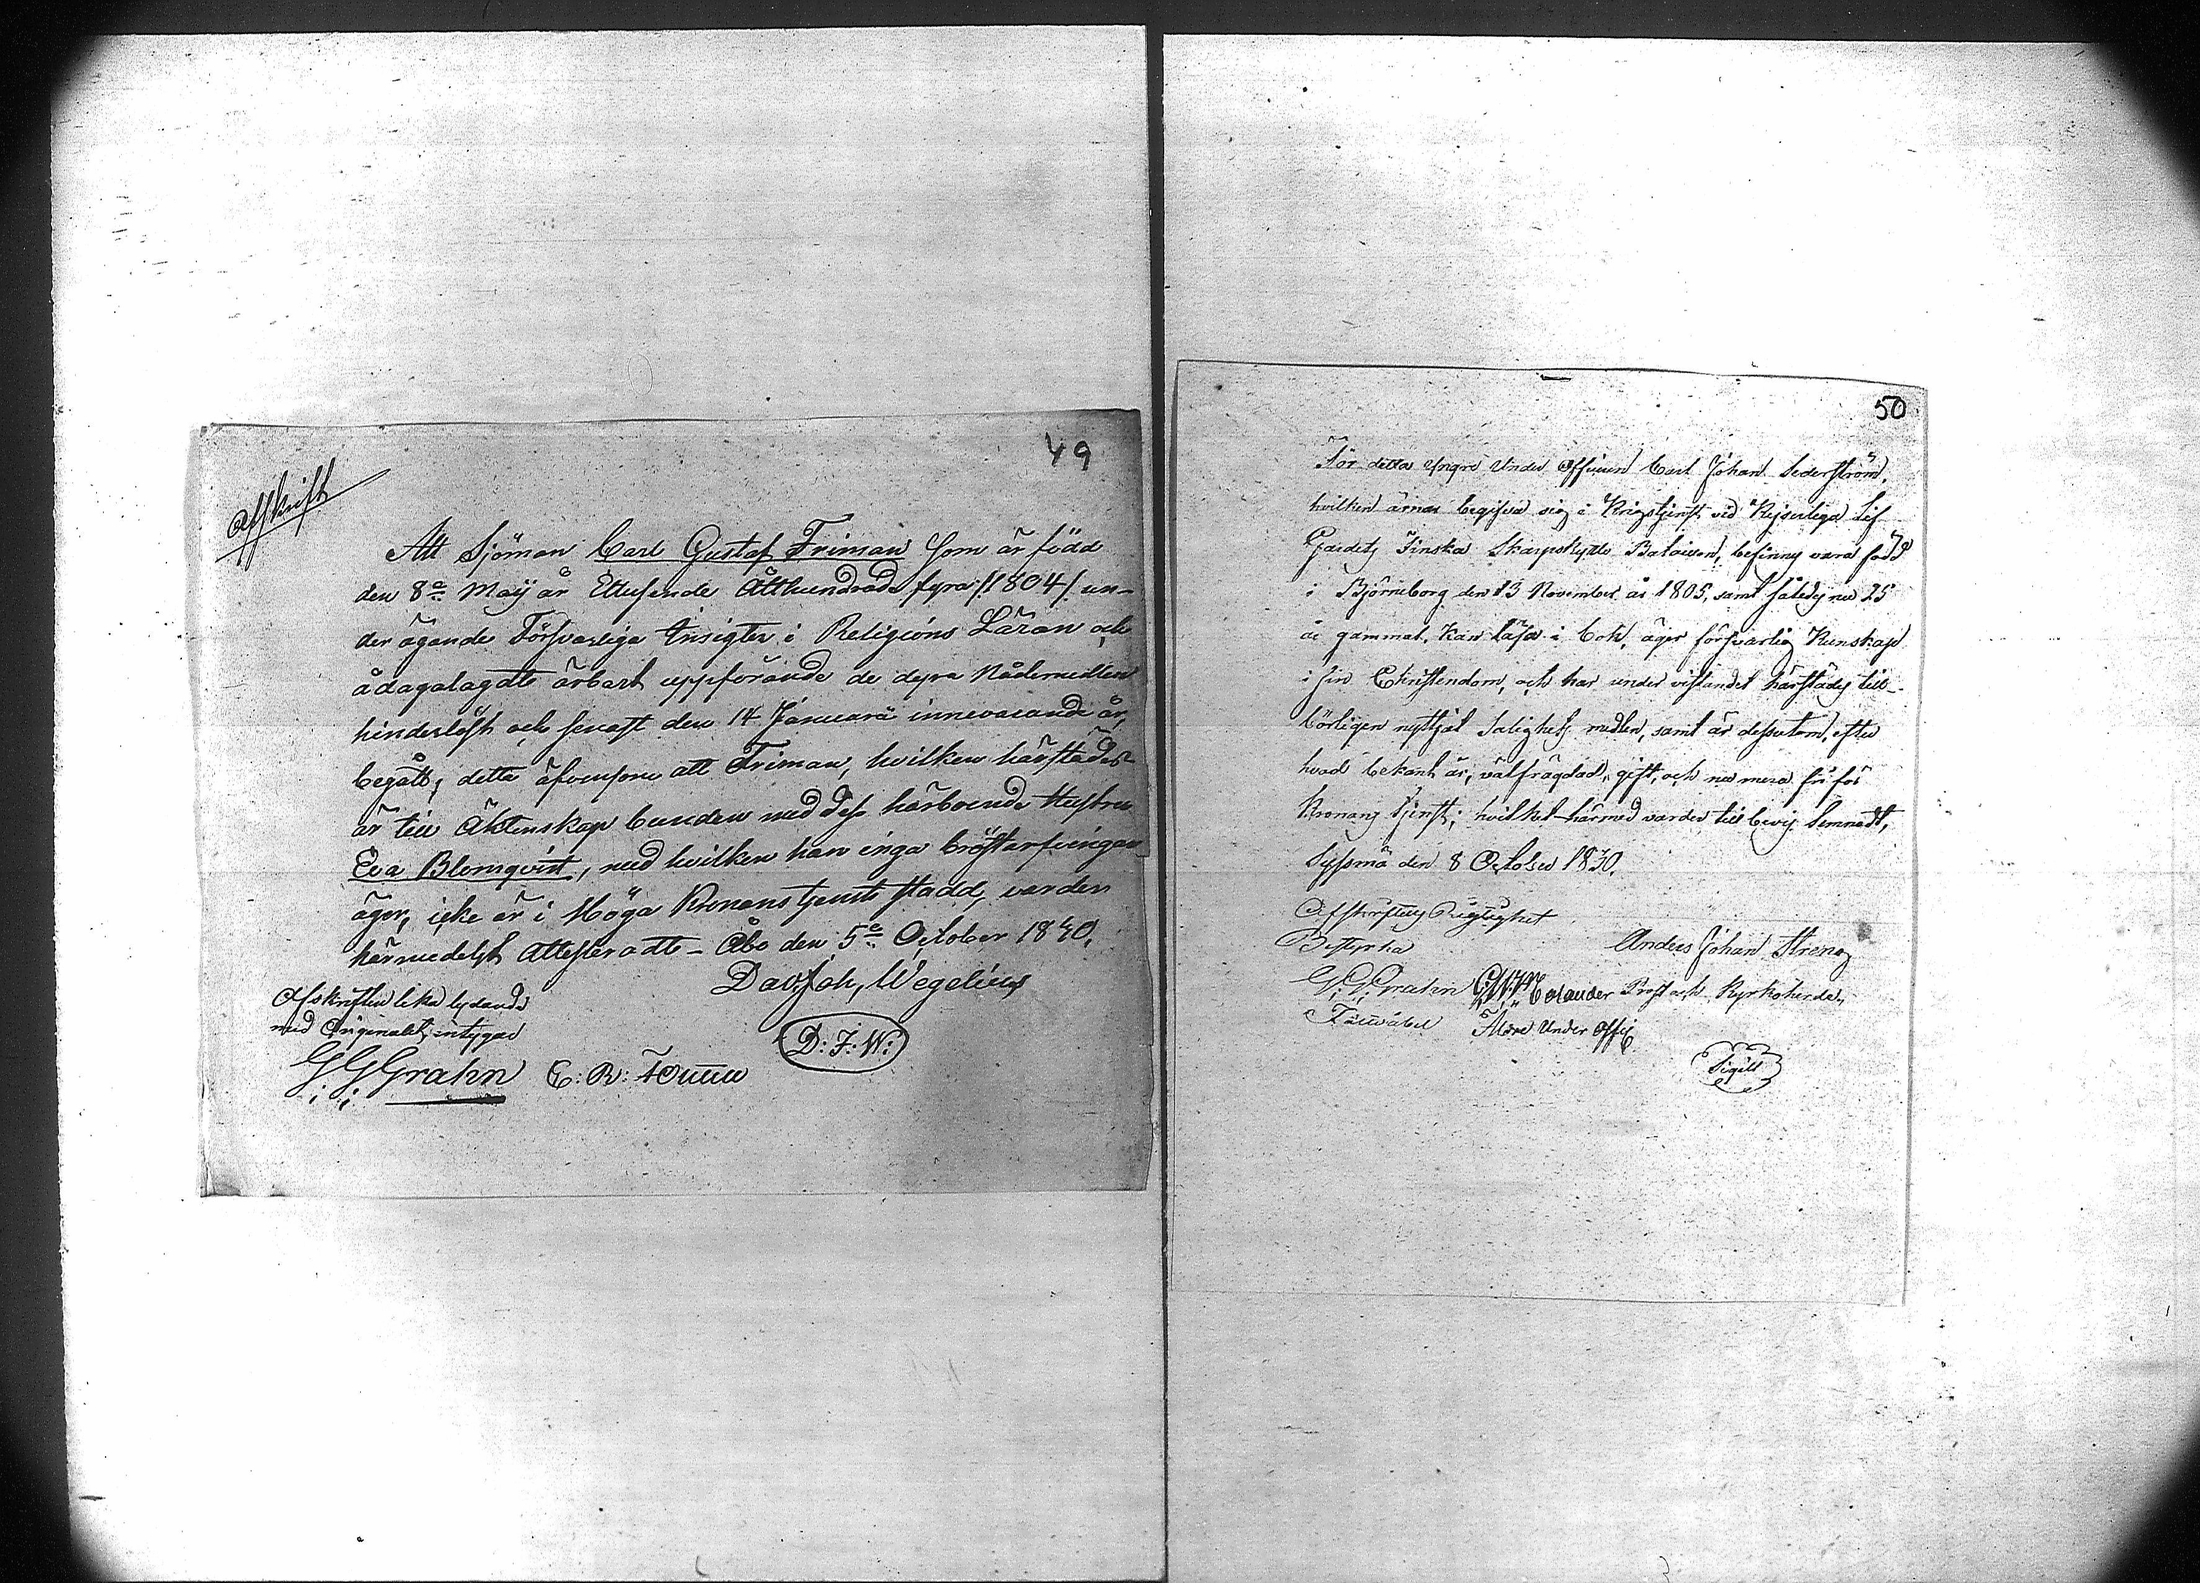 49
Afskrift
Att Sjöman Carl Gustaf Friman som är född
den 8e Maij år Ettusende Åttahundrade fyra /:1804:/ un-
der ägande Försvarliga Insigter i Religions Läran och
ådagalagdt ärbart uppförande de dyra Nådemedlen
hinderlöst och senast den 14 Januarii innevarande år,
begått; detta äfvensom att Friman, hvilken härstädes
är till Äktenskap bunden med dess härboende Hustru
Eva Blomqvist, med hvilken han inga bröstarfvingar
äger, icke är i Höga Kronans tjenst stadd, varder
härmedelst Attesteradt – Åbo den 5e October 1830.
Dav. Joh. Wegelius
D: J: W:
Afskriften lika lydande
med Originalet, intygar
G: G: Grahn E: R:
50
För detta Yngre Under Officeren Carl Johan Sederström,
hvilken ärnar begifva sig i Krigstjenst vid Kejserliga Lif
Gardets Finska Skarpskytte Bataillon, befinnes vara född
i Björneborg den 13 November år 1805, samt således nu 25
år gammal. Kan läsa i bok, äger försvarlig Kunskap
i sin Christendom, och har under vistandet härstädes till-
börligen nyttjat Salighets medlen, samt är dessutom, efter
hvad bekant är, välfrägdad, gift, och nu mera fri för
Kronans tjenst; hvilket härmed varder till bevis lemnadt,
Syssmä den 8 October 1830.
Afskriftens Rigtighet
Bestyrka
Anders Johan Streng
G: G: Grahn Prost och Kyrkoherde.
Fältväbel Äldre Under Offic
Sigill